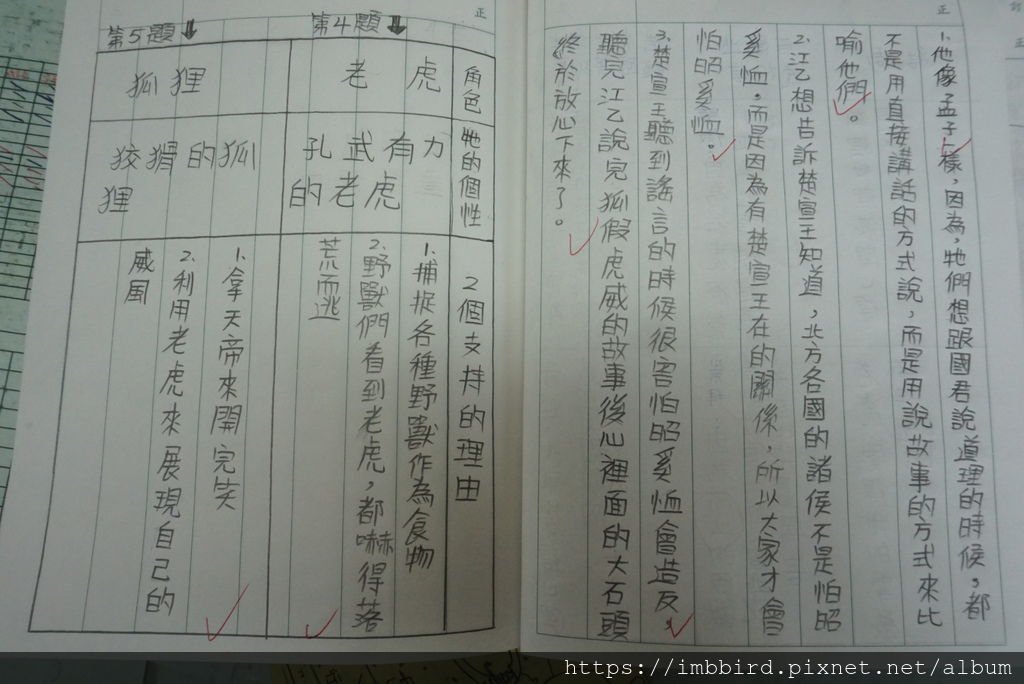 1.他像孟子一樣,因為,牠們想跟國君說道理的時候,都
不是用直接講話的方式說,而是用說故事的方式來比
喻他們。
2.江乙想告訴楚宣王知道,北方各國的諸侯不是怕昭
奚恤,而是因為有楚宣王在的關係,所以大家才會
怕昭奚恤。
3.楚宣王聽到謠言的時候很害怕昭奚恤會造反。
聽完江乙說完狐假虎威的故事後心裡面的大石頭
終於放心下來了。
第4題
第5題
角色
牠的個性
2個支持的理由
老虎
孔武有力
的老虎
1.捕捉各種野獸作為食物
2.野獸們看到老虎,都嚇得落
荒而逃
狐狸
狡猾的狐
狸
1.拿天帝來開完笑
2.利用老虎來展現自己的
威風
正
正
https://imbbird.pixnet.net/album